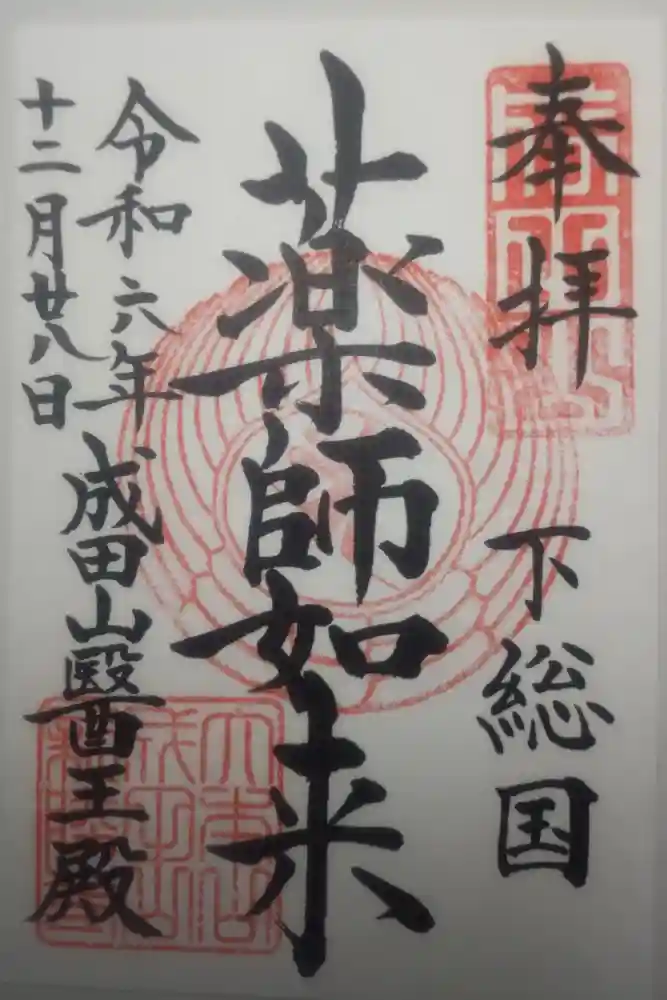 奉拝
下総国
薬師如来
令和六年
成田山醫王殿
十二月廿八日